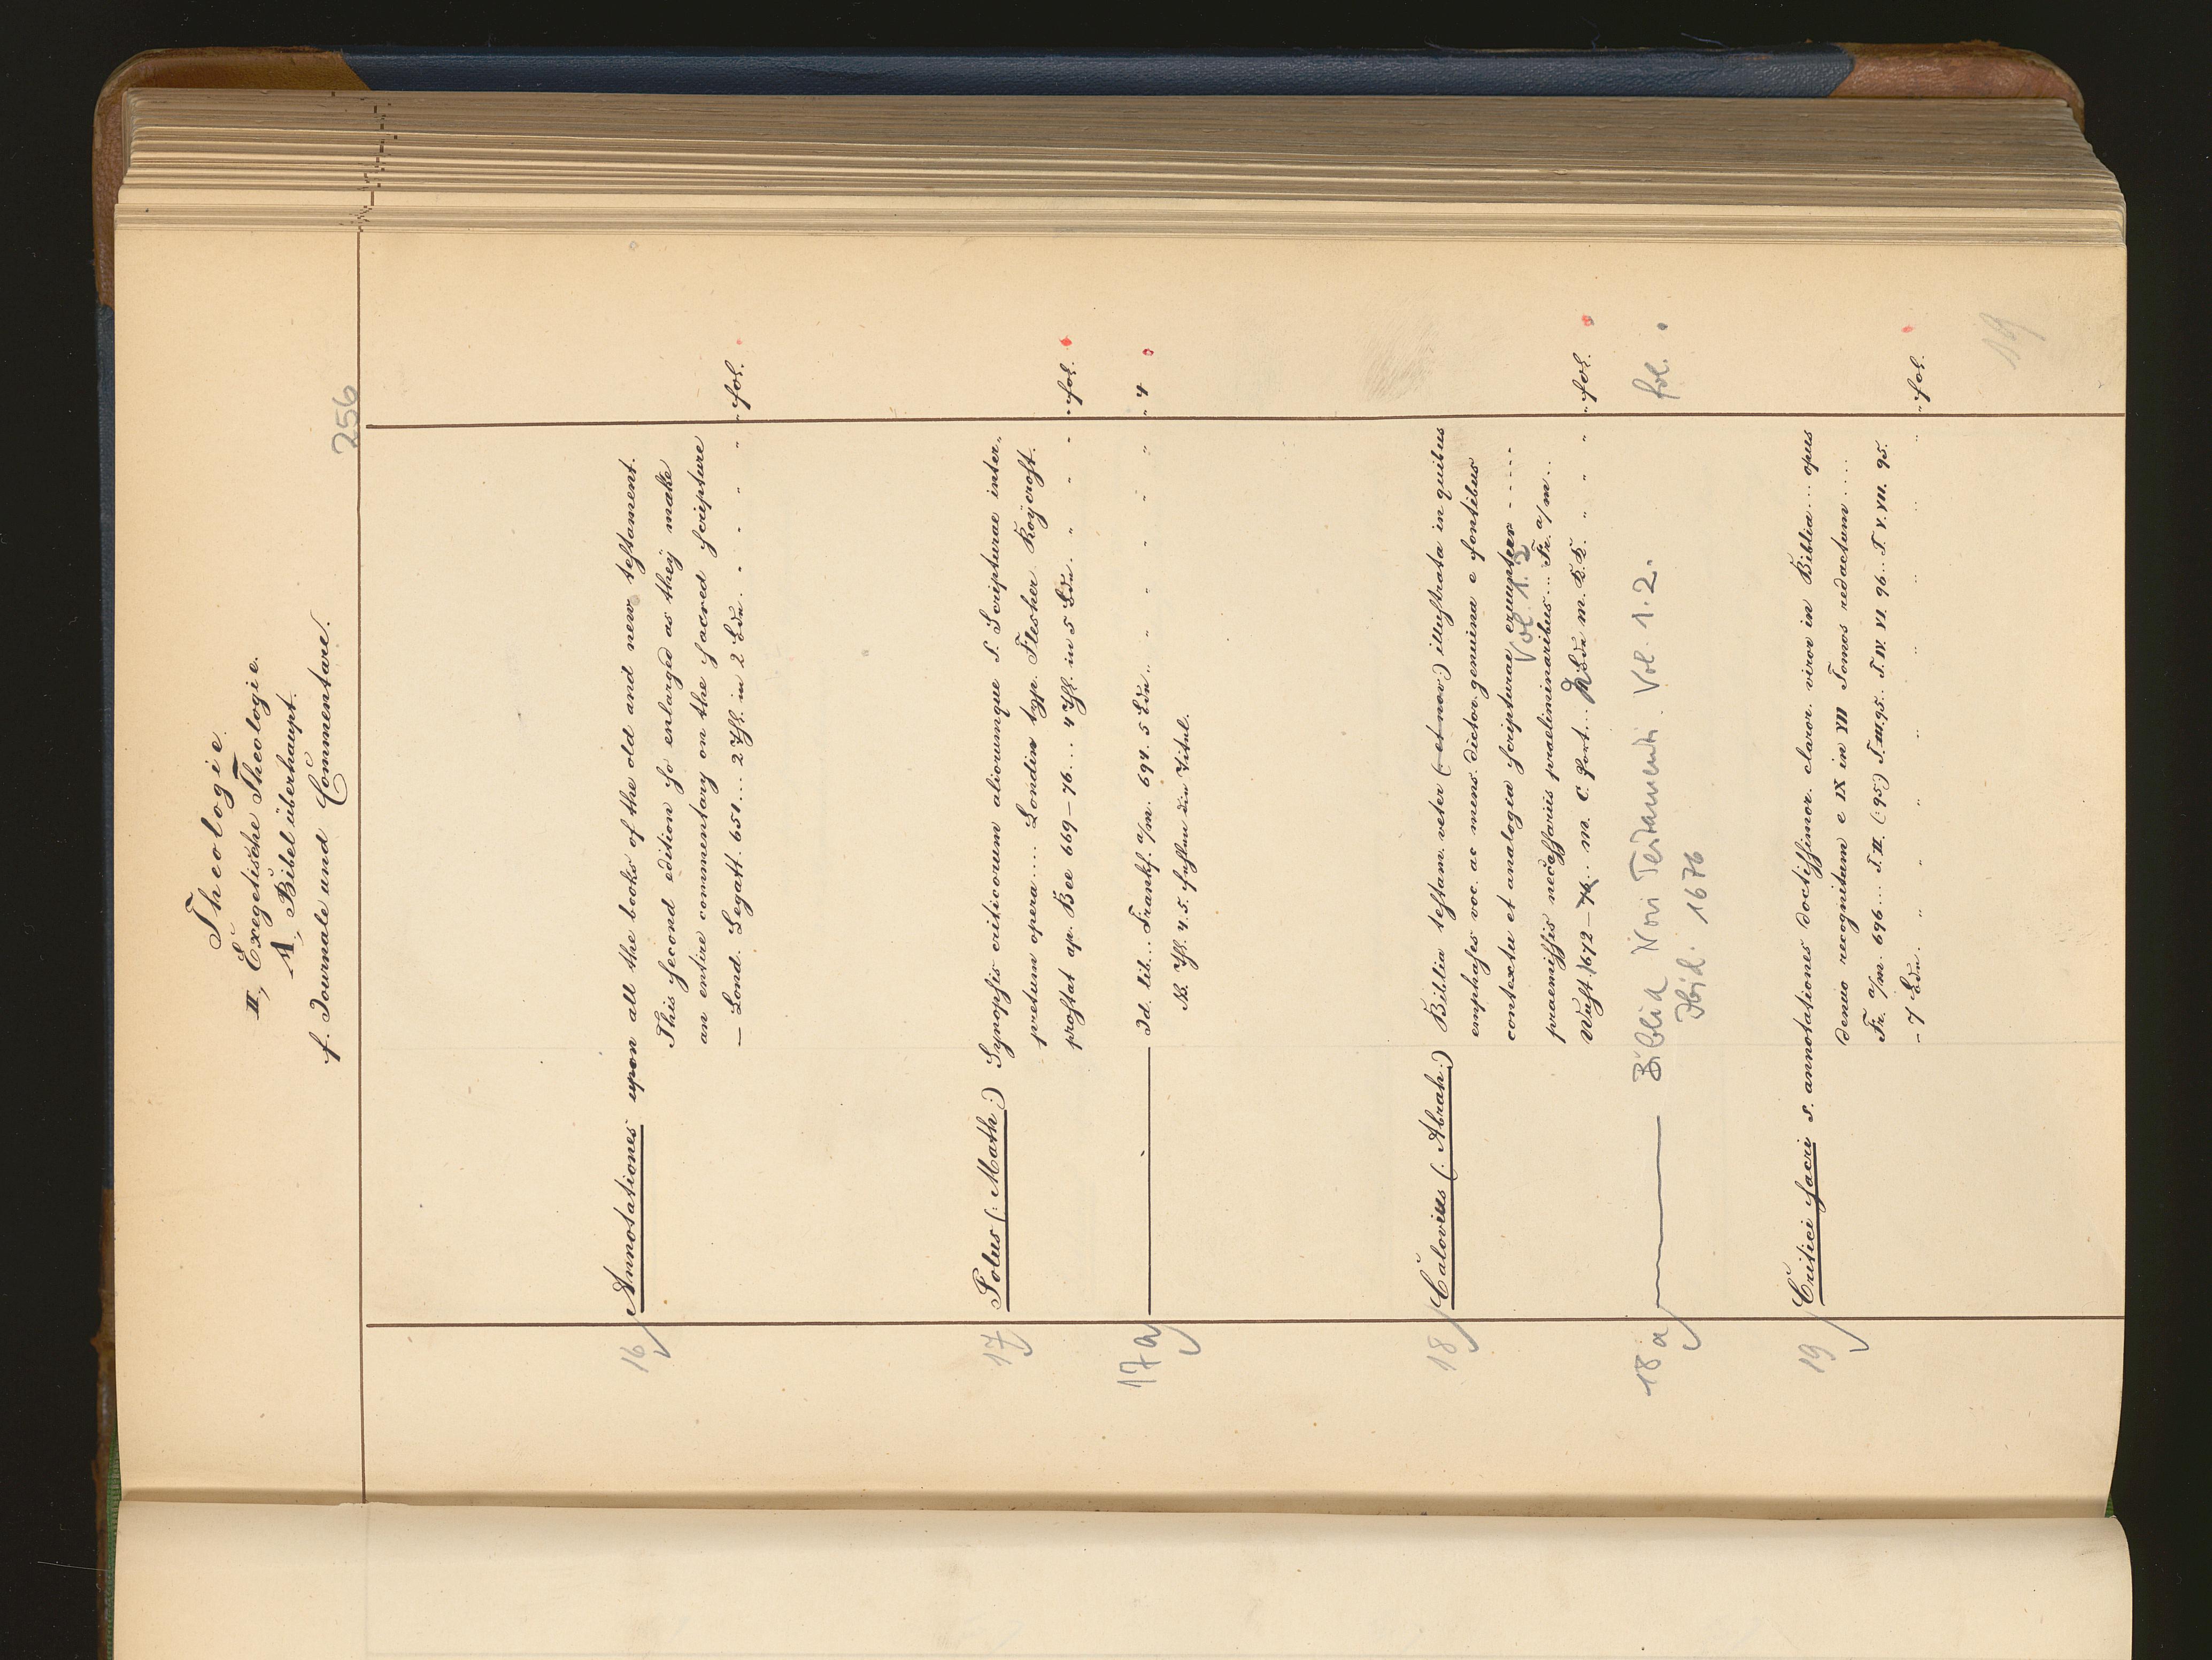 Theologie.
II, Exegetische Theologie.
A, Bibel überhaupt.
f. Journale und Commentare.
256
16 Annotationes upon all the books of the old and new testament.
This second edition so enlarged as they make
an entire commentary on the sacred scripture
— Lond. Legatt. 651... 2 Thl. in 2 Bdn. fol.
17 Polus (: Math:) Synopsis criticorum aliorumque S. Scripturae inter-
pretum opera.... Londin typ. Flesher Roycroft.
prostat ap. Bee 669-76... 4 Thl. in 5 Bdn. fol.
17a Id. lib... Frankf. a/m. 694. 5 Bdn. 4
NB. Thl. 4. 5. fehlen die Titel.
18 Calovius (: Abrah:) Biblia testam. veter (et nov:) illustrata in quibus
emphases voc. ac mens. dictor. genuina e fontibus
contextu et analogia scripturae eruuntur
Vol. 1. 2
praemissis necessariis praeliminaribus... Fr. a/m...
Wust. 1672-76... m. C. Port... Bdn m. K.K. fol.
18a Biblia Novi Testamenti. Vol. 1. 2. fol.
Ibid. 1676
19 Critici sacri s. annotationes doctissimor. claror. viror in Biblia... opus
denuo recognitum e IX in VII Tomos redactum....
Fr. a/m. 696... T. II. (:95:) T. III. 95.. T. IV. VI. 96.. T. V. VII. 95.
- 7 Bdn. fol.
19